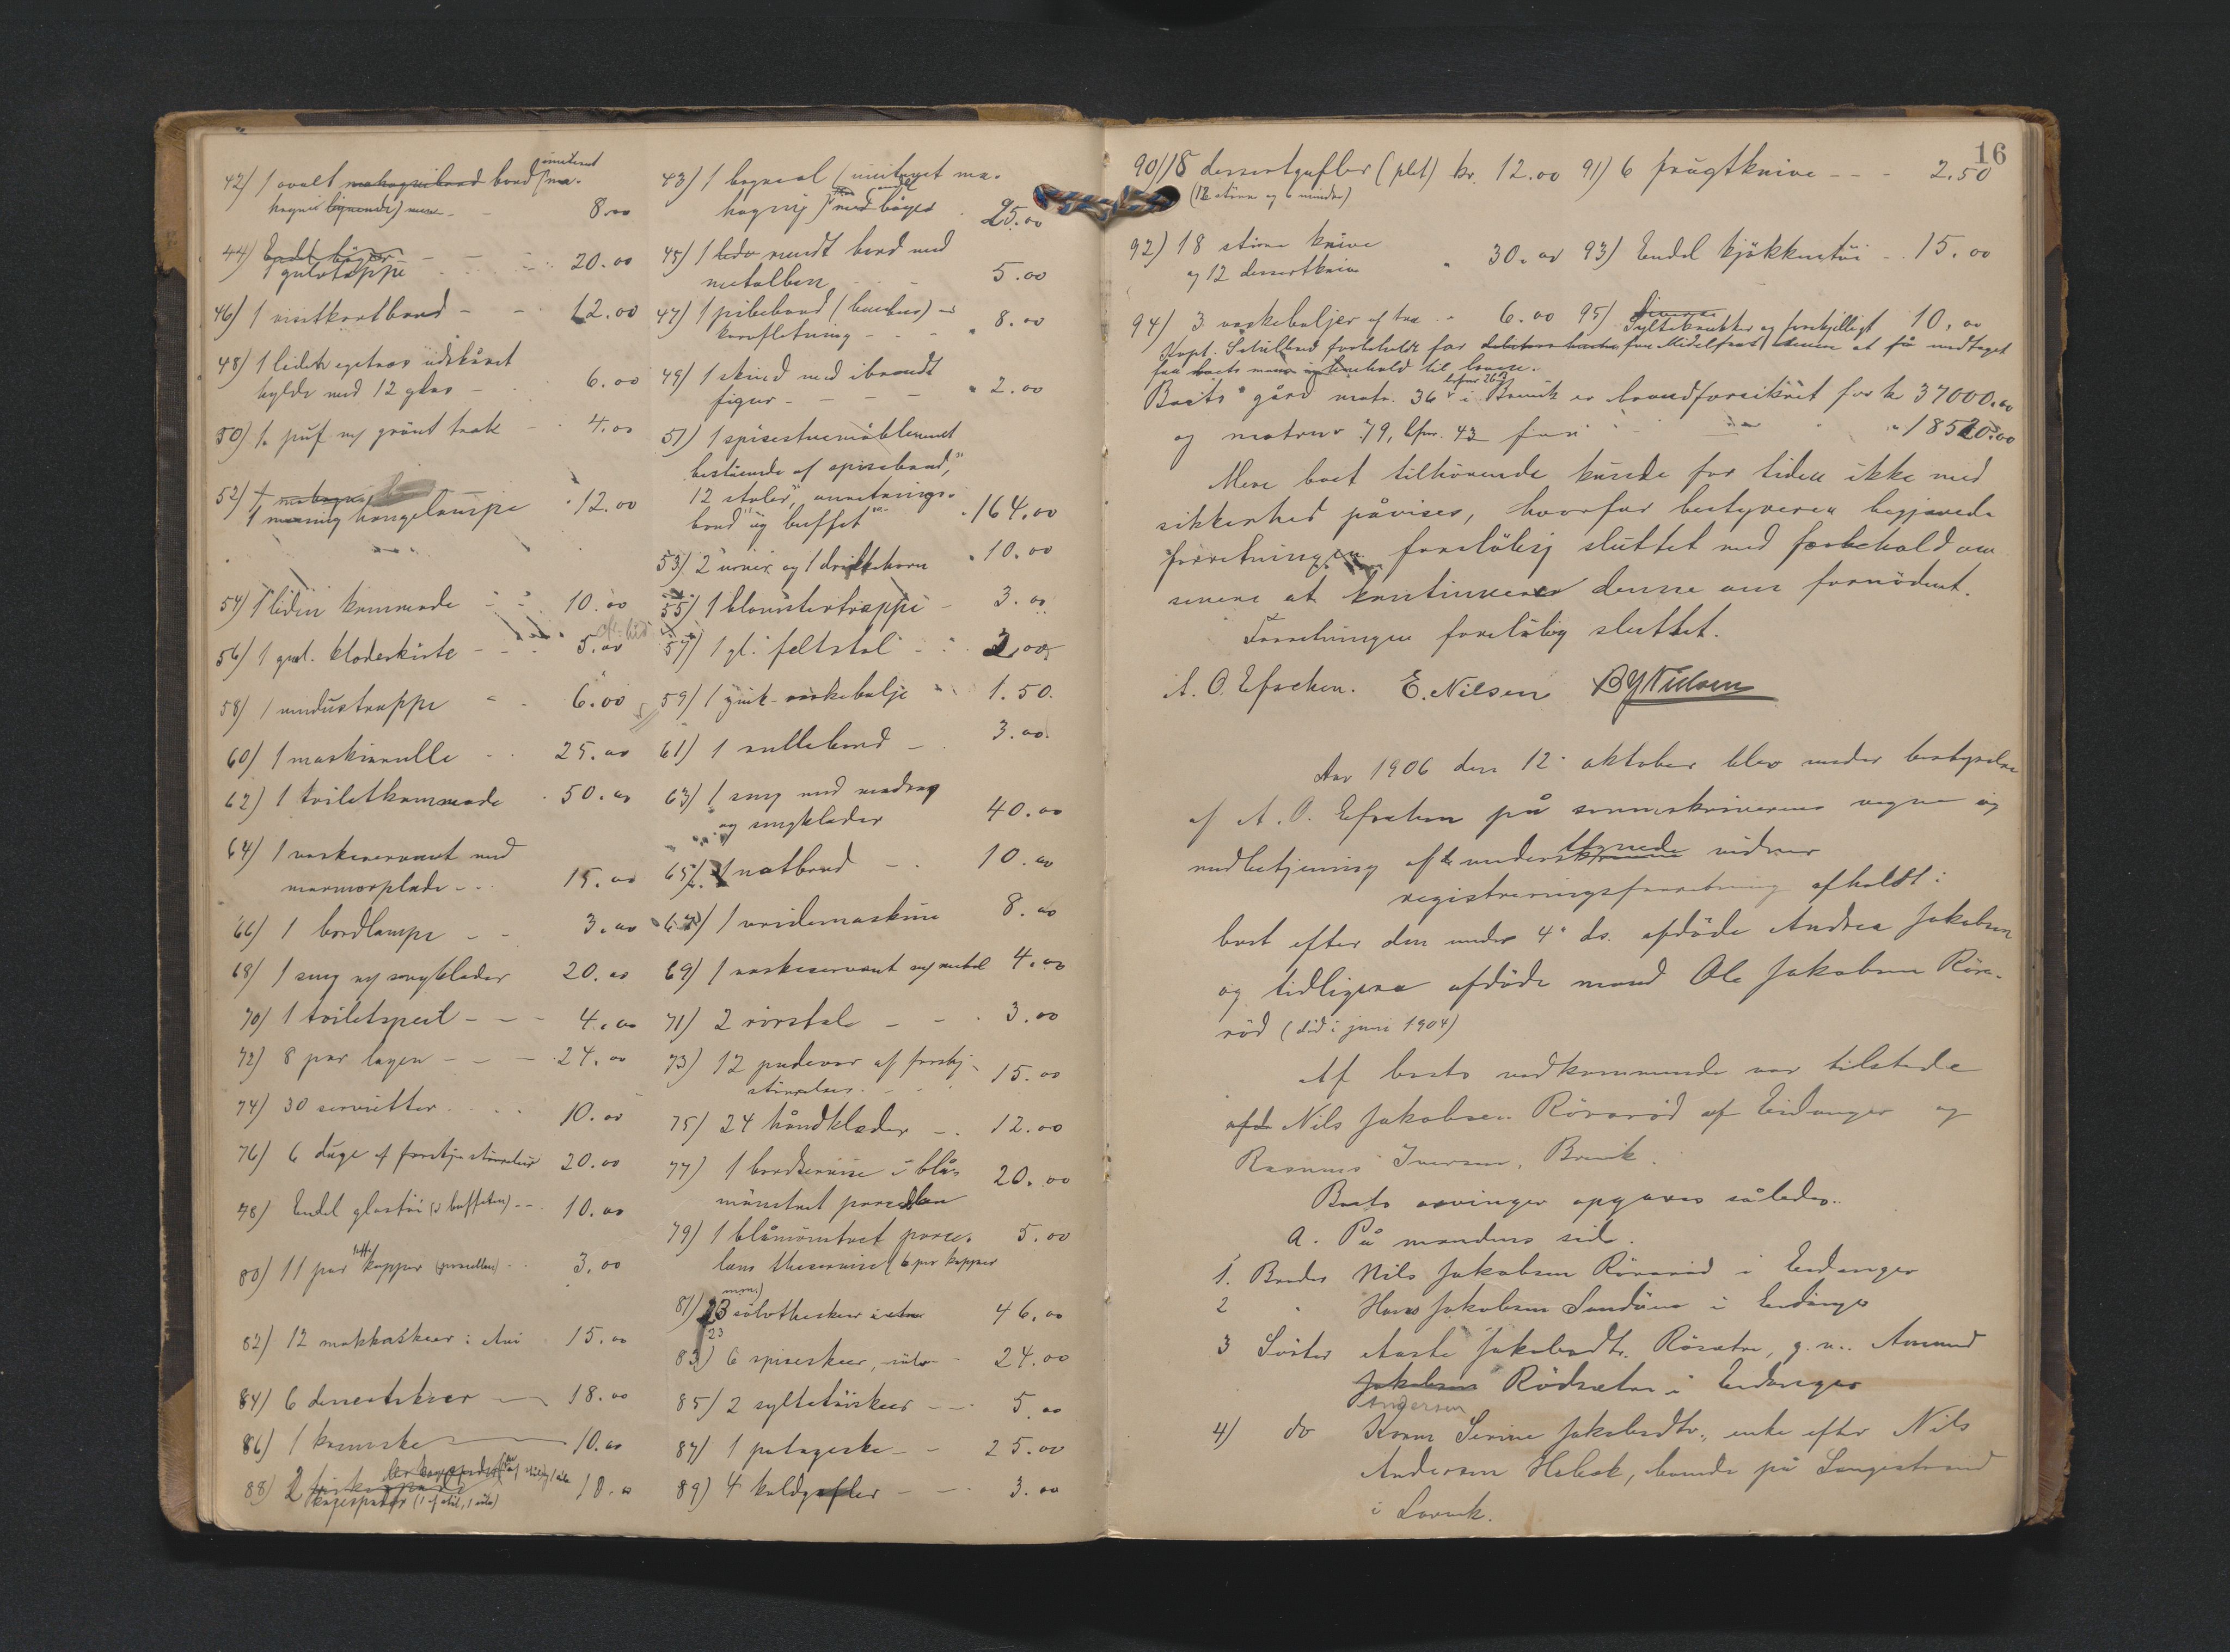 42) 1 ovalt mahognibord bord (imiteret ma-
hogni lignende) 8.00
44) Endel bøger
1 gulvtæppe - - 20.00
46) 1 visitkortbord - - 12.00
48) 1 liden egetræs udskåret
hylde med 12 glas - 6.00
50) 1 puf m/ grönt træk - 4.00
52) 1 mahogni
1 messing hængelampe 12.00
54) 1 liden kommode - - 10.00
56) 1 gml. klædeskiste - - 5.00
58) 1 vindustrappe - - 6.00
60) 1 maskinrulle - - 25.00
62) 1 toiletkommode - 50.00
64) 1 vaskeservant med
marmorplade - - 15.00
66) 1 bordlampe - - 3.00
68) 1 seng m/ sengklæder 20.00
70) 1 toiletspeil - - - 4.00
72) 8 par lagen - - - 24.00
74) 30 servietter - - - 10.00
76) 6 duge af forskj. störrelser 20.00
78) Endel glastöi (i buffeten) - - 10.00
80) 11 par kopper (porcellen) - - 3.00
82) 12 mokkaskeer i etui 15.00
84) 6 dessertskeer - 18.00
86) 1 - 10.00
88) 2
kagespader (1 af stål, 1 sölv) 18.00
43) 1 bogreol (imiteret ma-
hogni) med bøger 25.00
45) 1 rundt bord med
metalben 5.00
47) 1 pibebord (bambus) m/
kurvfletning - - 8.00
49) 1 skind med ibrændt
figur - - - 2.00
51) 1 spisestuemöblement
bestående af spisebord,
12 stoler, anretnings-
bord og buffet 164.00
53) 2 urner og 1 drikkehorn 10.00
55) 1 blomstertrappe - 3.00
57) 1 gl. feltstol - - 2.00
59) 1 zink-vaskebalje - 1.50
61) 1 rullebord - 3.00
63) 1 seng med madras
og sengklæder 40.00
65) 1 natbord - - 10.00
67) 1 vridemaskine 8.00
69) 1 vaskeservant af metal 4.00
71) 2 rörstole - - 3.00
73) 12 pudevar af forskj.
störrelser 15.00
75) 24 håndklæder - 12.00
77) 1 bordservise i blå-
mönstret porcellæn 20.00
79) 1 blåmönstret porce-
læns theservise (6 par kopper 5.00
81) 23 sölvtheskeer 46.00
23
83) 6 spiseskeer, sölv - 24.00
85) 2 syltetöiskeer - - 5.00
87) 1 potageske - - 25.00
89) 4 koldgafler - - 3.00
16
90) 18 dessertgafler (plet) kr. 12.00 91) 6 frugtknive - - - 2.50
(12 störe og 6 mindre)
92) 18 störe knive
og 12 dessertknive " 30.00 93) Endel kjökkentöi - 15.00
94) 3 vaskebaljer af træ - " 6.00 95) Diverse
Syltekrukker og forskjelligt 10.00
Kapt. forbeholdt for senere at få medtaget
Boets gård matr. 36 i Brevik er brandforsikret for kr 37000.00
og matrnr 79, lbnr. 43 for - - 18520.00
Mere boet tilhörende kunde for tiden ikke med
sikkerhed påvises, hvorfor bestyreren begjærede
forretningen foreløbig sluttet med forbehold om
senere at kontinuere denne om fornödent.
Forretningen foreløbig sluttet.
A. O. Efsehen. E. Nilsen
Aar 1906 den 12 oktober blev under bestyrelse
af A. O. på sorenskriverens vegne og
medbetjening af de undertegnede vidner
registreringsforretning afholdt i
boet efter den under 4' ds. afdöde Andrea Jakobsen
og tidligere afdöde mand Ole Jakobsen Röra-
röd (död i juni 1904)
Af boets vedkommende var tilstede
Nils Jakobsen Röraröd af Eidanger og
Rasmus Iversen, Brevik.
Boets arvinger opgaves således:
A. På mandens side.
1. Broder Nils Jakobsen Röraröd i Eidanger
2 " Hans Jakobsen Sandöen i Eidanger
3 Söster Aaste Jakobsdtr. g. m. Amund
Jakobsen Rödsæter i Eidanger
Andersen
4) do Karen Serine Jakobsdtr., enke efter Nils
Andersen Holbek, boende på Langestrand
i Larvik.